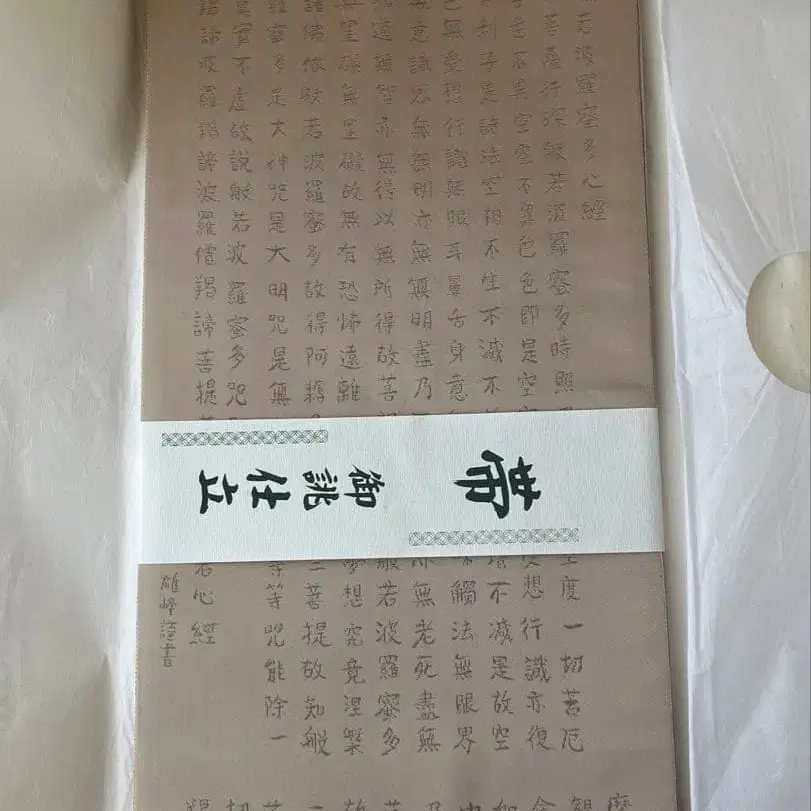 若波羅蜜多心經
菩薩行深般若波羅蜜多時照
度一切苦厄
舌不異空空不異色色即是空空
想行識亦復
利子是諸法空相不生不滅不
增不減是故空
無受想行識無眼耳鼻舌身意
觸法無眼界
無意識界無無明亦無無明盡乃
無老死盡無
道無智亦無得以無所得故菩
般若波羅蜜多
罣礙無罣礙故無有恐怖遠離
夢想究竟涅槃
諸佛依般若波羅蜜多故得阿耨
三菩提故知般
羅蜜多是大神咒是大明咒是無
等等咒能除一
真實不虛故說般若波羅蜜多咒
揭諦波羅揭諦波羅僧揭諦菩提
心經
謹書
帯
御誂仕立